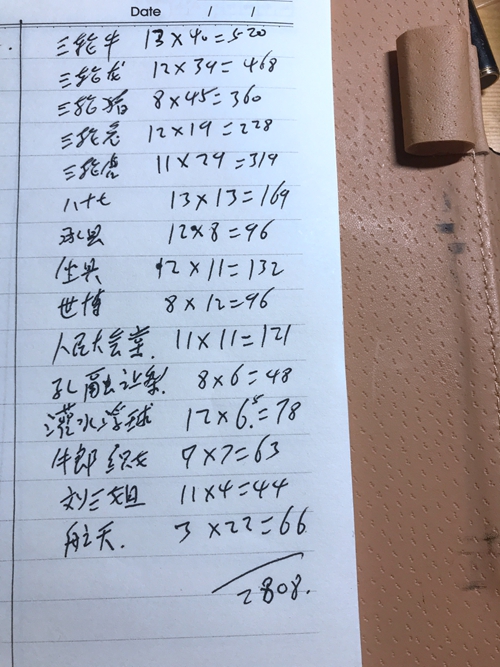 Date / /
三轮牛 13×40=520
三轮龙 12×39=468
三轮猪 8×45=360
三轮兔 12×19=228
三轮虎 11×29=319
八十七 13×13=169
12×8=96
12×11=132
世博 8×12=96
人民大会堂. 11×11=121
孔融让梨 8×6=48
灌水浮球 12×6.5=78
牛郎织女 9×7=63
刘三姐 11×4=44
航天. 3×22=66
2808.